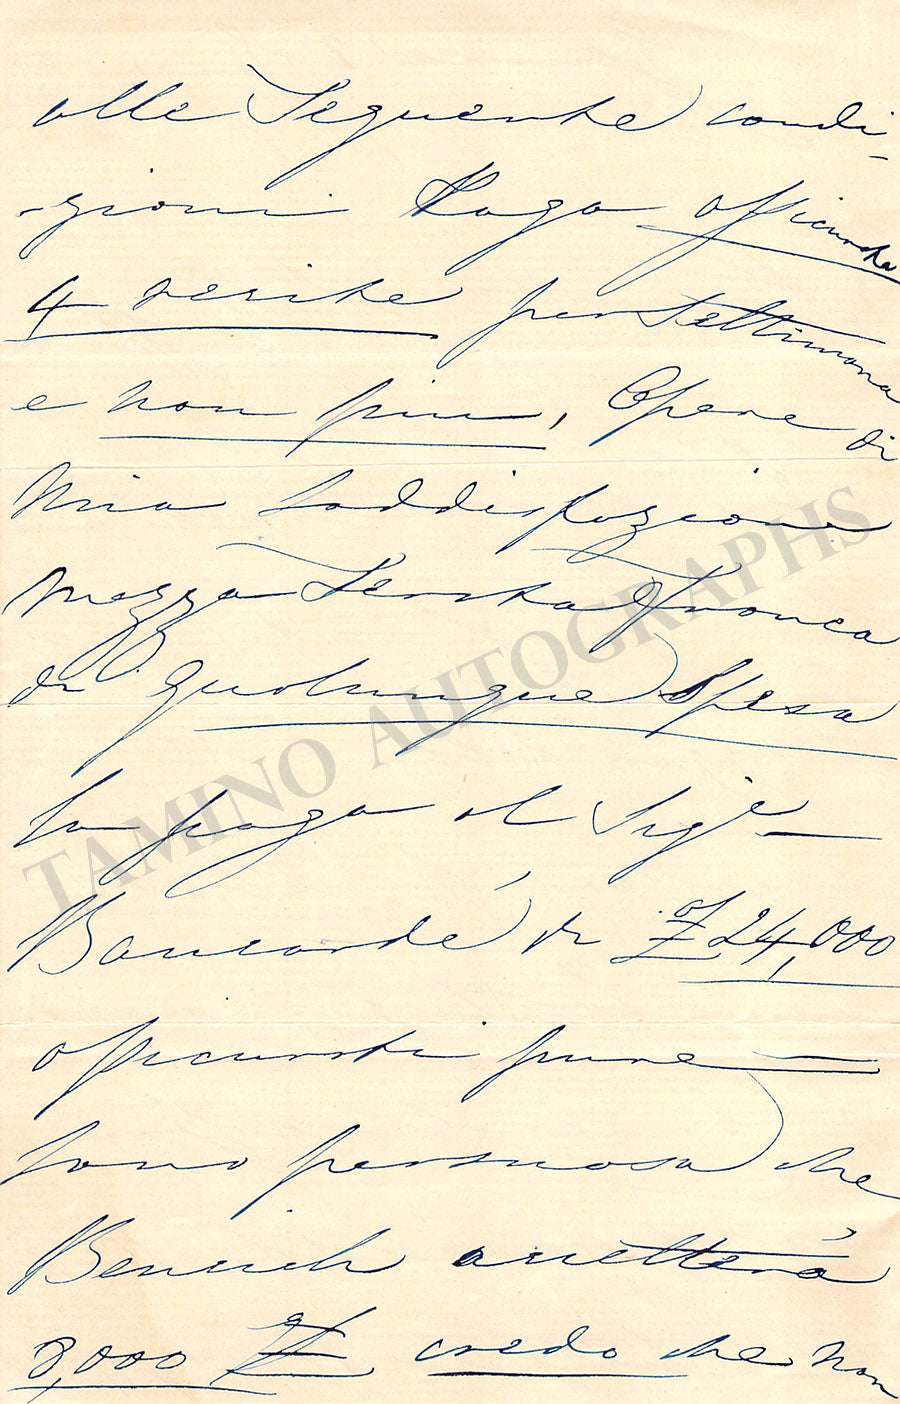 alle Seguente condi-
-zioni Paga assicurata
4 recite per Settimana
e non piu, Opere di
Mia Soddisfazione
Mezza Serata franca
di qualunque Spesa
La paga al Sigr
Bancardé di 24,000
assicurati pure
Sono persuasa che
Benich accetterà
8,000 credo che non
TAMINO AUTOGRAPHS